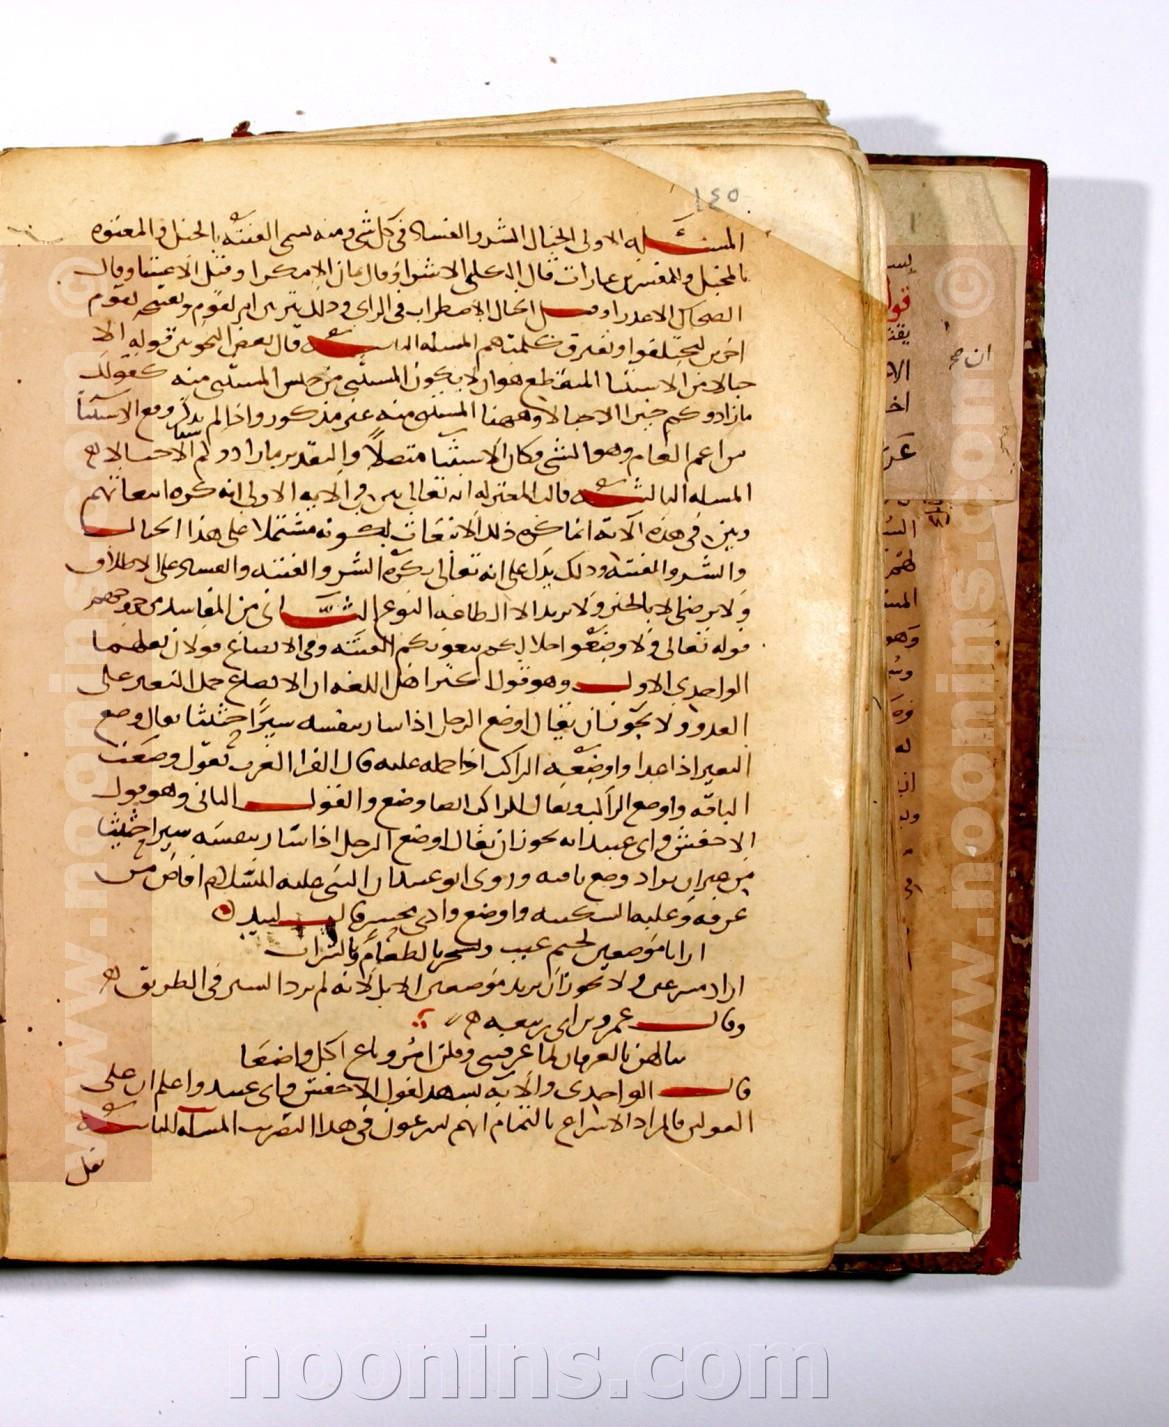 ١٤٥
المسئلة الاولى الخبال الشر والفساد فى كل شى ومنه سمى العته بالخبل والمعتوه
بالمخبل وللمفسرين عبارات قال الكلبى الا شرا وقال يمان الا مكرا وقيل الا عيثا وقال
الضحاك الا غدرا وقيل الخبال الاضطراب فى الراى وذلك بتزيين امر لقوم وتقبيحه لقوم
اخرين ليختلفوا وتفترق كلمتهم المسئلة الثانية قال بعض النحويين قوله الا
خبالا من الاستثنا المنقطع هو ان لا يكون المستثنى من جنس المستثنى منه كقولك
ما زادوكم خيرا الا خبالا وههنا المستثنى منه غير مذكور واذا لم يذكر وقع الاستثنا
من اعم العام وهو الشى فكان الاستثنا متصلا والتقدير ما زادوكم شيا الا خبالا
المسئلة الثالثة قالت المعتزلة انه تعالى بين فى الاية الاولى انه كره انبعاثهم
وبين فى هذه الاية انما كره ذلك الانبعاث لكونه مشتملا على هذا الخبال
والشر والفتنة وذلك يدل على انه تعالى يكره الشر والفتنة والفساد على الاطلاق
ولا يرضى الا بالخير ولا يريد الا الطاعة النوع الثانى من المفاسد خروجهم
قوله تعالى ولا وضعوا خلالكم يبغونكم الفتنة وفى الايضاع قولان نقلهما
الواحدى الاول وهو قول اكثر اهل اللغة ان الايضاع حمل البعير على
العدو ولا يجوز ان يقال اوضع الرجل اذا سار بنفسه سيرا حثيثا يقال وضع
البعير اذا عدا واوضعه الراكب اذا حمله عليه قال الفرا العرب تقول وضعت
الناقة واوضع الراكب ويقال للراكب ايضا وضع والقول الثانى وهو قول
الاخفش وابى عبيد انه يجوز ان يقال اوضع الرجل اذا سار بنفسه سيرا حثيثا
من غير ان يراد وضع ناقته وروى ابو عبيد ان النبى عليه السلام افاض من
عرفة وعليه السكينة واوضع وادى محسر قال لبيد
ارانا موضعين لحتم غيب ونسحر بالطعام وبالشراب
اراد مسرعين ولا يجوز ان يريد موضعين الابل لانه لم يرد السير فى الطريق
وقال عمر بن ابى ربيعة
تبالهن بالعرفان لما عرفننى وقلن امرؤ باغ اكل واوضعا
قال الواحدى والاية تشهد لقول الاخفش وابى عبيد واعلم ان على
القولين فالمراد الاسراع بالنمام انهم يسرعون فى هذا التضريب المسئلة الثانية
نقل
ان صح
www.noonins.com
www.noonins.com
noonins.com